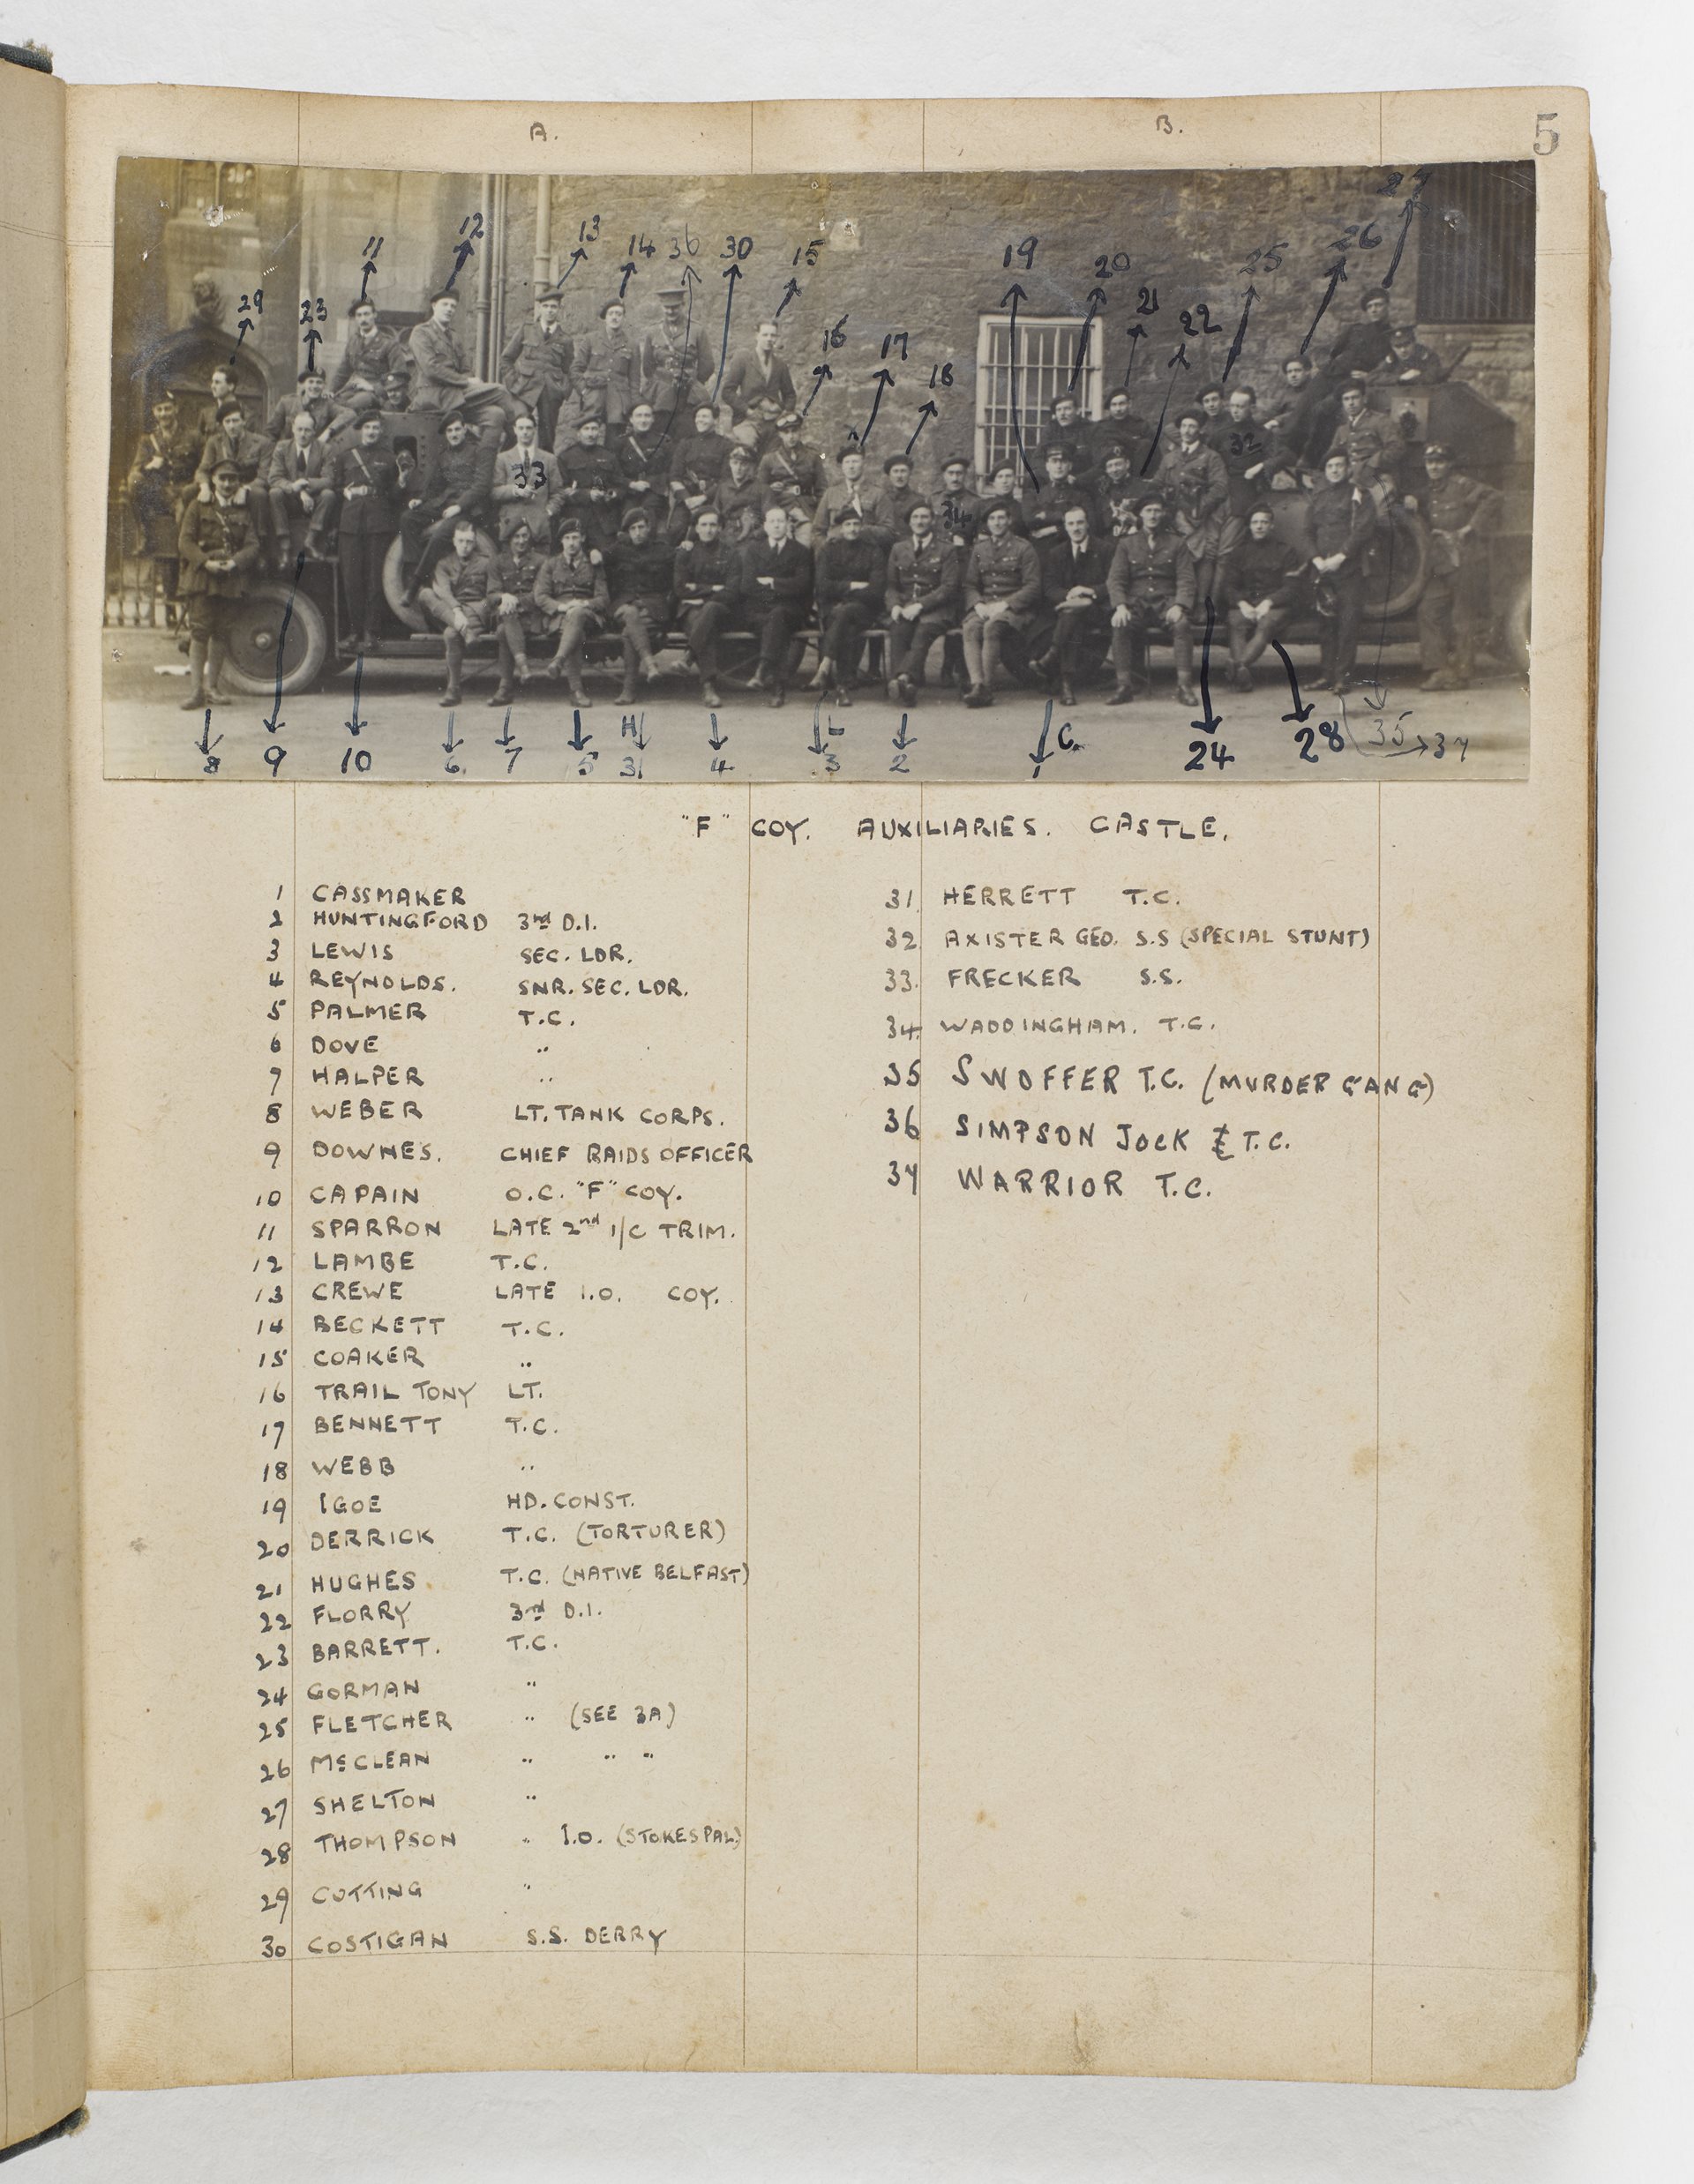 A.
B.
5
29
23
11
12
13
14
36
30
15
16
17
18
19
20
21
22
25
26
27
33
32
34
8
9
10
6
7
5
H
31
4
L
3
2
1
C.
24
28
35
37
"F" COY. AUXILIARIES. CASTLE.
1 CASSMAKER
2 HUNTINGFORD 3rd D.I.
3 LEWIS SEC. LDR.
4 REYNOLDS. SNR. SEC. LDR.
5 PALMER T.C.
6 DOVE "
7 HALPER "
8 WEBER LT. TANK CORPS.
9 DOWNES. CHIEF RAIDS OFFICER
10 CAPAIN O.C. "F" COY.
11 SPARRON LATE 2nd I/C TRIM.
12 LAMBE T.C.
13 CREWE LATE I.O. COY.
14 BECKETT T.C.
15 COAKER "
16 TRAIL TONY LT.
17 BENNETT T.C.
18 WEBB "
19 IGOE HD. CONST.
20 DERRICK T.C. (TORTURER)
21 HUGHES T.C. (NATIVE BELFAST)
22 FLORRY 3rd D.I.
23 BARRETT. T.C.
24 GORMAN "
25 FLETCHER " (SEE 3A)
26 McCLEAN " " "
27 SHELTON "
28 THOMPSON " I.O. (STOKES PAL)
29 COTTING "
30 COSTIGAN S.S. DERRY
31 HERRETT T.C.
32 AXISTER GEO. S.S (SPECIAL STUNT)
33. FRECKER S.S.
34 WADDINGHAM. T.C.
35 SWOFFER T.C. (MURDER GANG)
36 SIMPSON JOCK T.C.
37 WARRIOR T.C.